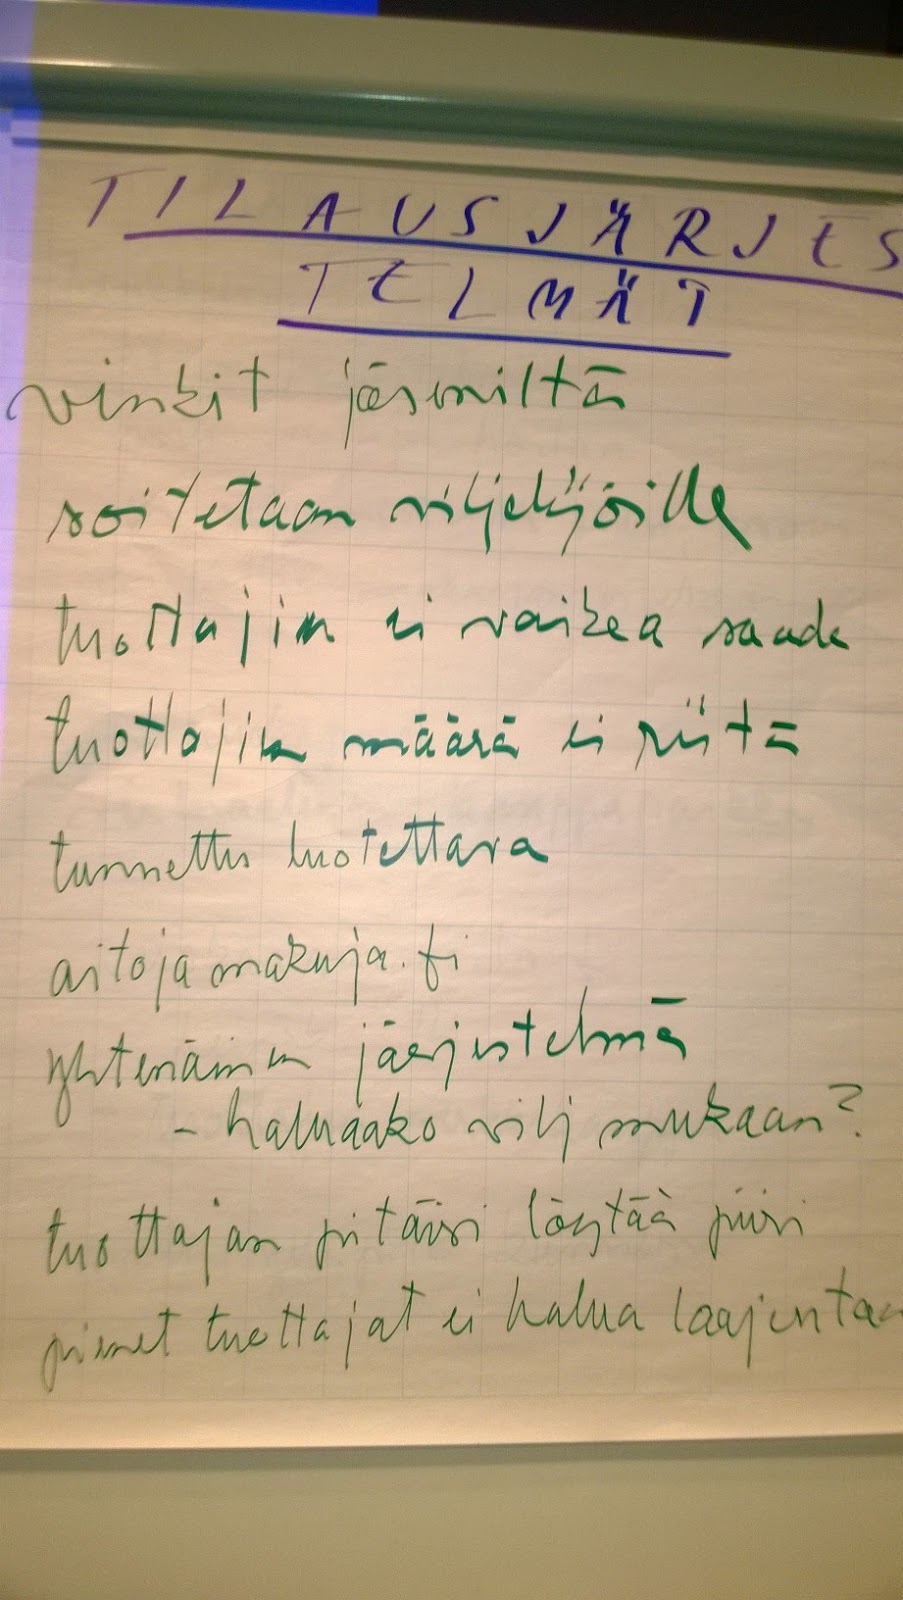 TILAUSJÄRJES
TELMÄT
vinkit jäseniltä
soitetaan viljelijöille
tuottajia ei vaikea saada
tuottajia määrä ei riitä
tunnettu luotettava
aitojamakuja.fi
yhtenäinen järjestelmä
- haluaako vilj mukaan?
tuottajan pitäisi löytää piiri
pienet tuottajat ei halua laajentaa